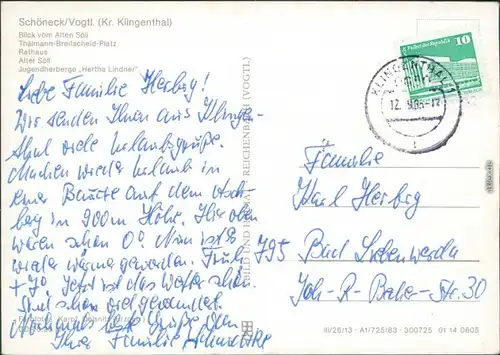 Schöneck/Vogtl. (Kr. Klingenthal)
Blick vom Alten Söll
Thälmann-Breitscheid-Platz
Rathaus
Alter Söll
Jugendherberge „Hertha Lindner"
Liebe Familie Herbig!
Wir senden Ihnen aus Klingen-
thal viele Urlaubsgrüße.
Machen wieder Urlaub in
einer Baude auf dem Asch-
berg in 900m Höhe. Hier oben
waren schon 0° Nun ist's
wieder wärmer geworden. Früh
+7° Jetzt ist das Wetter schön.
Sind schon viel gewandert.
Nochmals Grüße von
Ihrer Familie
BILD UND HEIMAT REICHENBACH (VOGTL)
10
KLINGENTHAL 1
Familie
Karl Herbig
795 Bad Liebenwerda
Joh-R-Becher-Str. 30
III/26/13 A1/725/83 300725 01 14 0605